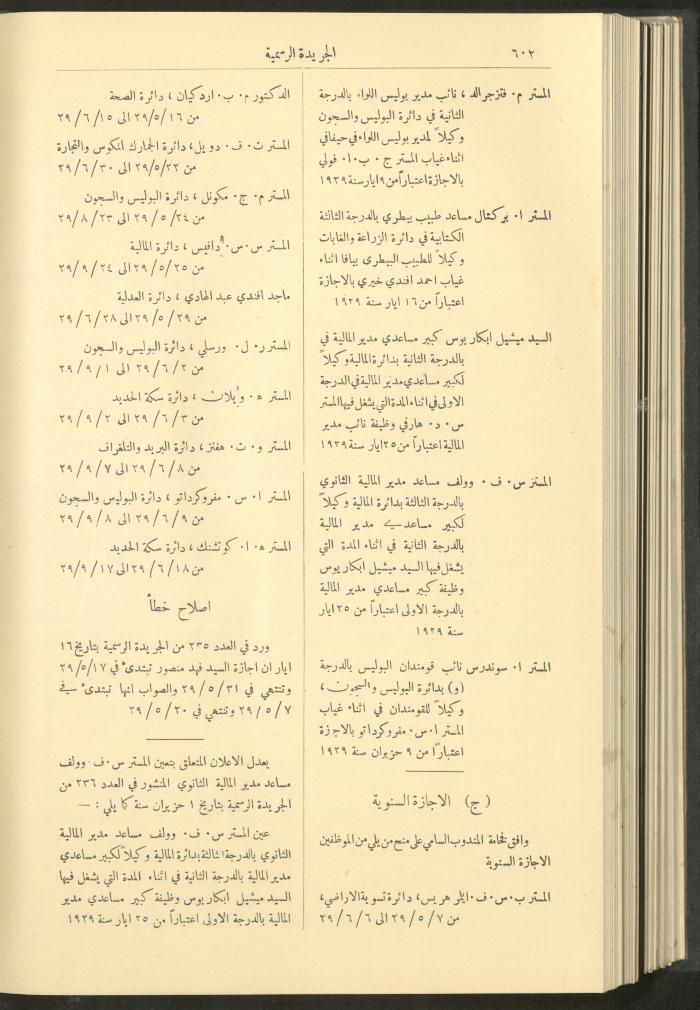 ٦٠٢
الجريدة الرسمية
المستر م٠ فتزجرالد ، نائب مدير بوليس اللواء بالدرجة
الثانية في دائرة البوليس والسجون
وكيلاً لمدير بوليس اللواء في حيفا في
اثناء غياب المستر ج ٠ ب ٠ا٠ فولي
بالاجازة اعتباراً من ٩ ايار سنة ١٩٢٩
المستر ا٠ بركتال مساعد طبيب بيطري بالدرجة الثالثة
الكتابية في دائرة الزراعة والغابات
وكيلاً للطبيب البيطري بيافا اثناء
غياب احمد افندي خيري بالاجازة
اعتباراً من ١٦ ايار سنة ١٩٢٩
السيد ميشيل ابكاريوس كبير مساعدي مدير المالية في
بالدرجة الثانية بدائرة المالية وكيلاً
لكبير مساعدي مدير المالية في الدرجة
الاولى في اثناء المدة التي يشغل فيها المستر
س ٠ د٠ هارفي وظيفة نائب مدير
المالية اعتباراً من ٢٥ ايار سنة ١٩٢٩
المستر س ٠ ف ٠ وولف مساعد مدير المالية الثانوي
بالدرجة الثالثة بدائرة المالية وكيلاً
لكبير مساعدي مدير المالية
بالدرجة الثانية في اثناء المدة التي
يشغل فيها السيد ميشيل ابكاريوس
وظيفة كبير مساعدي مدير المالية
بالدرجة الاولى اعتباراً من ٢٥ ايار
سنة ١٩٢٩
المستر ا٠ سوندرس نائب قومندان البوليس بالدرجة
(و) بدائرة البوليس والسجون ،
وكيلاً للقومندان في اثناء غياب
المستر ا٠س٠ مفروكرداتو بالاجازة
اعتباراً من ٩ حزيران سنة ١٩٢٩
(ج) الاجازة السنوية
وافق فخامة المندوب السامي على منح من يلي من الموظفين
الاجازة السنوية
المستر ب٠ س٠ ف٠ ايلر هريس، دائرة تسوية الاراضي،
من ٧ /٥ /٢٩ الى ٦ /٦ /٢٩
الدكتور م٠ ب٠ اردكيان ، دائرة الصحة
من ١٦ /٥ /٢٩ الى ١٥ /٦ /٢٩
المستر ت٠ ف٠ دويل، دائرة الجمارك المكوس والتجارة
من ٢٢ /٥ /٢٩ الى ٣٠ /٦ /٢٩
المستر م٠ ج٠ مكونل ، دائرة البوليس والسجون
من ٢٤ /٥ /٢٩ الى ٢٣ /٨ /٢٩
المستر س٠ س٠ دافيس ، دائرة المالية
من ٢٥ /٥ /٢٩ الى ٢٤ /٩ /٢٩
ماجد افندي عبد الهادي ، دائرة العدلية
من ٢٩ /٥ /٢٩ الى ٢٨ /٦ /٢٩
المستر ر٠ ل٠ ورسلي ، دائرة البوليس والسجون
من ٢ /٦ /٢٩ الى ١ /٩ /٢٩
المستر ه٠ ويلان ، دائرة سكة الحديد
من ٣ /٦ /٢٩ الى ٢ /٩ /٢٩
المستر و٠ ت٠ هفنز ، دائرة البريد والتلغراف
من ٨ /٦ /٢٩ الى ٧ /٩ /٢٩
المستر ا٠ س٠ مفروكرداتو ، دائرة البوليس والسجون
من ٩ /٦ /٢٩ الى ٨ /٩ /٢٩
المستر ه٠ ا٠ كوتشنك ، دائرة سكة الحديد
من ١٨ /٦ /٢٩ الى ١٧ /٩ /٢٩
اصلاح خطأ
ورد في العدد ٢٣٥ من الجريدة الرسمية بتاريخ ١٦
ايار ان اجازة السيد فهد منصور تبتدئ في ١٧ /٥ /٢٩
وتنتهي في ٣١ /٥ /٢٩ والصواب انها تبتدئ في
٧ /٥ /٢٩ وتنتهي في ٢٠ /٥ /٢٩
يعدل الاعلان المتعلق بتعين المستر س٠ ف٠ وولف
مساعد مدير المالية الثانوي المنشور في العدد ٢٣٦ من
الجريدة الرسمية بتاريخ ١ حزيران سنة كما يلي : —
عين المستر س٠ ف٠ وولف مساعد مدير المالية
الثانوي بالدرجة الثالثة بدائرة المالية وكيلاً لكبير مساعدي
مدير المالية بالدرجة الثانية في اثناء المدة التي يشغل فيها
السيد ميشيل ابكاريوس وظيفة كبير مساعدي مدير
المالية بالدرجة الاولى اعتباراً من ٢٥ ايار سنة ١٩٢٩